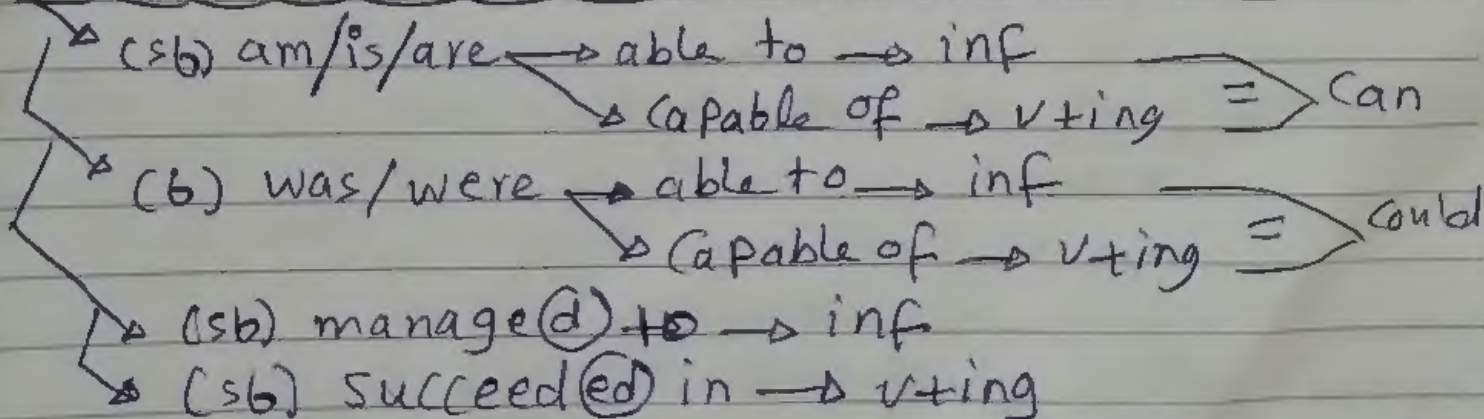 (sb) am/is/are → able to → inf
capable of → v+ing = Can
(b) was/were → able to → inf
capable of → v+ing = could
(sb) managed to → inf
(sb) succeeded in → v+ing